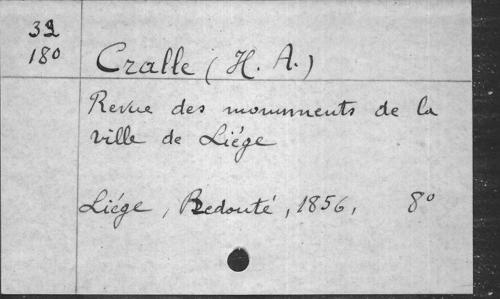 32
180
Cralle (H. A.)
Revue des monuments de la
ville de Liége
Liége, Redouté, 1856, 8°